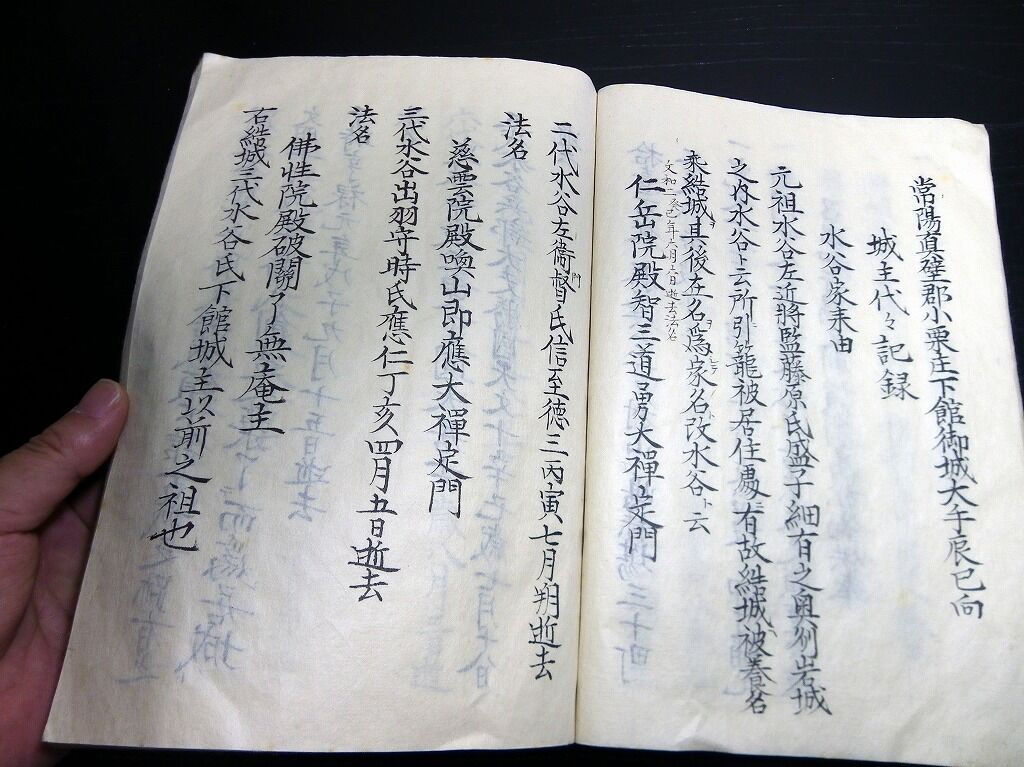 常陽真壁郡小栗庄下館御城大手辰巳向
城主代々記録
水谷家来由
元祖水谷左近将監藤原氏盛子細有之奥州岩城
之内水谷ト云所引籠被居住處ニ有故結城被養名
乘結城其後在名爲家名改水谷ト云
文和二癸巳年六月六日逝去法名
仁岳院殿智三道勇大禪定門
二代水谷左衛門督氏信至德三丙寅七月朔逝去
法名
慈雲院殿喚山即應大禪定門
三代水谷出羽守時氏應仁丁亥四月五日逝去
法名
佛性院殿破關了無庵主
右結城三代水谷氏下館城主以前之祖也